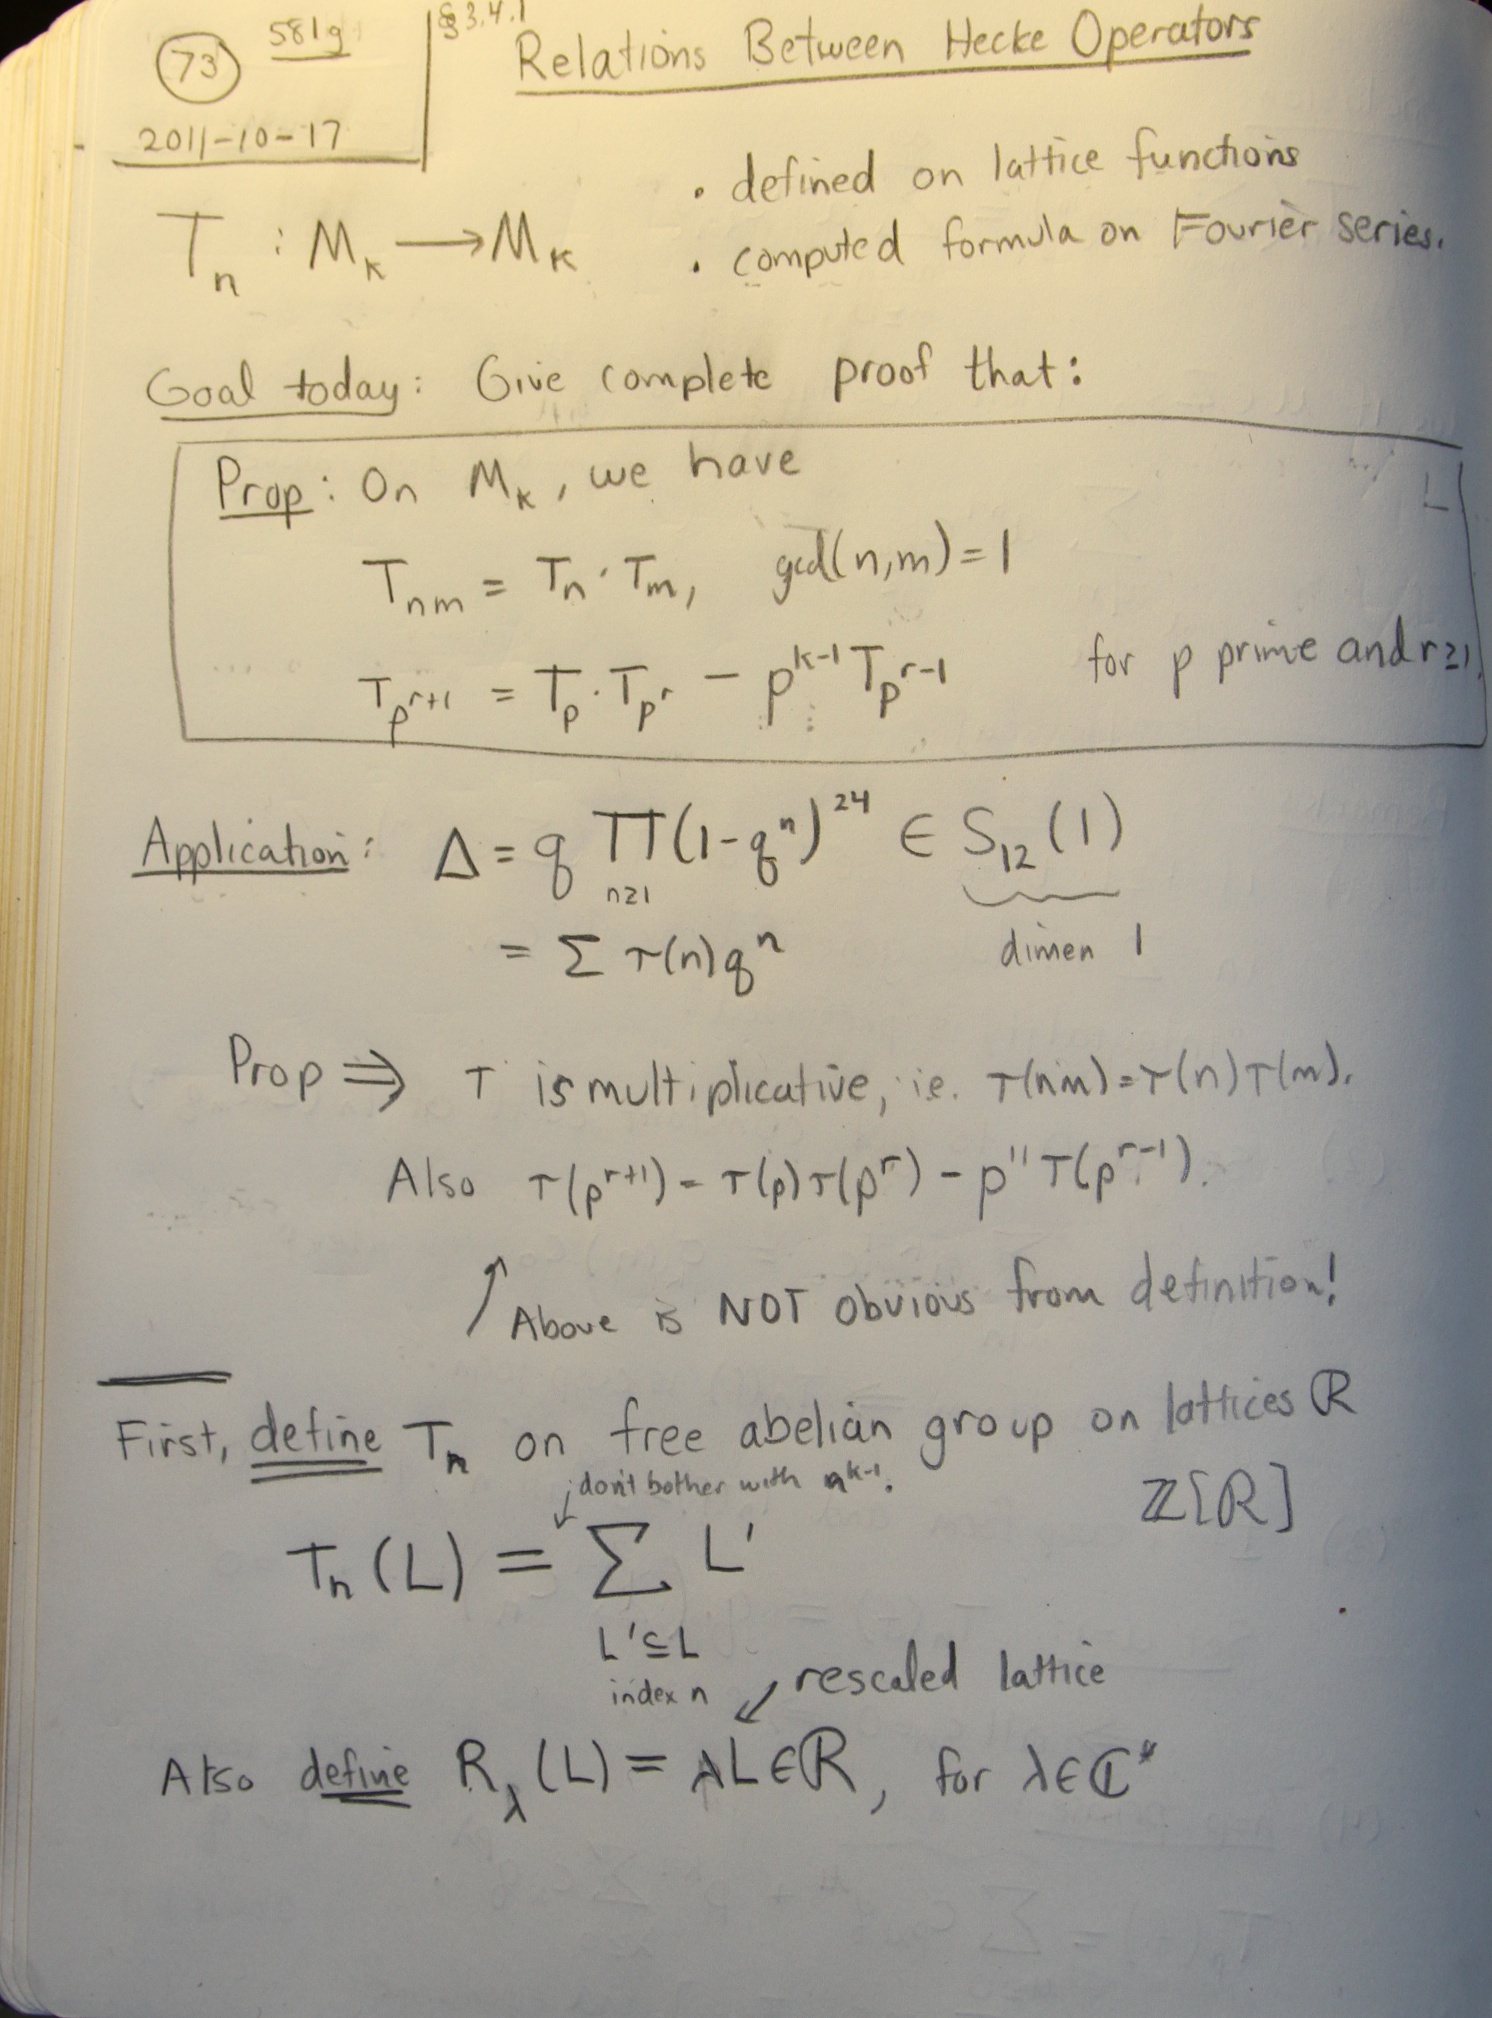 73 581g §3.4.1
Relations Between Hecke Operators
2011-10-17
• defined on lattice functions
T_n : M_k ⟶ M_k
• computed formula on Fourier series.
Goal today: Give complete proof that:
Prop: On M_k, we have
T_{nm} = T_n · T_m, gcd(n,m) = 1
T_{p^{r+1}} = T_p · T_{p^r} − p^{k-1} T_{p^{r-1}} for p prime and r≥1
Application: Δ = q ∏_{n≥1} (1-q^n)^{24} ∈ S_{12}(1)
= Σ τ(n)q^n dimen 1
Prop ⟹ τ is multiplicative, ie. τ(nm)=τ(n)τ(m).
Also τ(p^{r+1}) = τ(p)τ(p^r) − p^{11} τ(p^{r-1}).
↑ Above is NOT obvious from definition!
First, define T_n on free abelian group on lattices ℛ
don't bother with n^{k-1}. ℤ[ℛ]
T_n(L) = Σ L'
L'⊆L
index n
rescaled lattice
Also define R_λ(L) = λL∈ℛ, for λ∈ℂ*